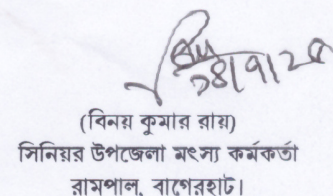 ২৪/৭/২৫
(বিনয় কুমার রায়)
সিনিয়র উপজেলা মৎস্য কর্মকর্তা
রামপাল, বাগেরহাট।